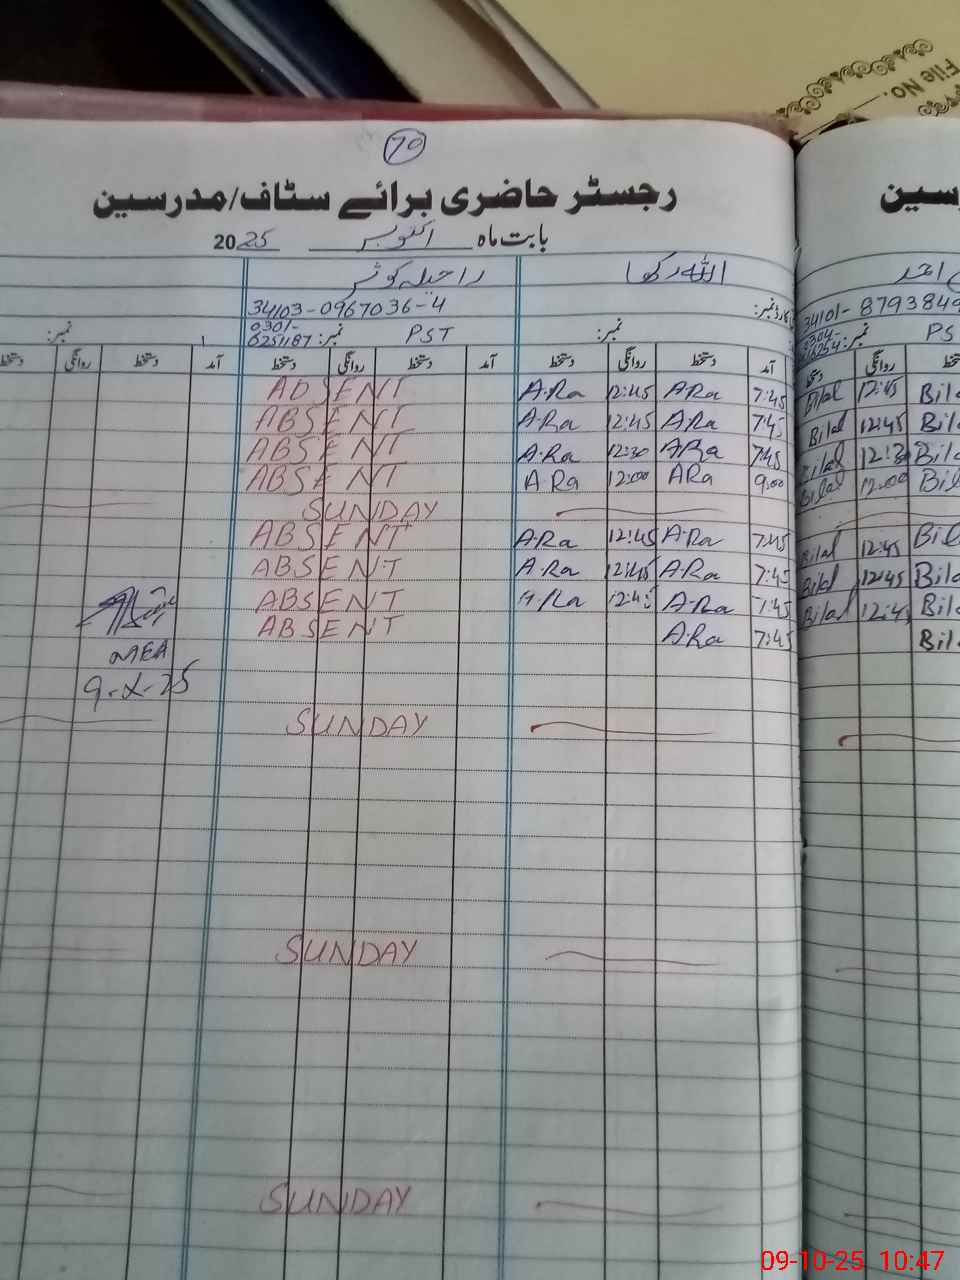 File No.
70
رجسٹر حاضری برائے سٹاف/مدرسین
سین
بابت ماہ اکتوبر 2025
اللہ رکھا راحیلہ کوثر
34103-0967036-4
34101-8793849
نمبر: PST نمبر: 0301-6251187 نمبر:
نمبر: PS
آمد دستخط روانگی دستخط آمد دستخط روانگی دستخط آمد دستخط روانگی دستخط
7:45 ARa 12:45 A.Ra ABSENT
7:45 ARa 12:45 A.Ra ABSENT
7:45 ARa 12:30 A.Ra ABSENT
9:00 ARa 12:00 A.Ra ABSENT
SUNDAY
7:45 A.Ra 12:45 A.Ra ABSENT
7:45 A.Ra 12:45 A.Ra ABSENT
7:45 A.Ra 12:45 A.Ra ABSENT
7:45 A.Ra ABSENT
MEA
9-X-25
SUNDAY
SUNDAY
SUNDAY
Bila 12:45 Bilal
Bila 12:45 Bilal
Bila 12:3 Bilal
Bila 12:00 Bilal
Bil 12:45 Bilal
Bila 12:45 Bilal
Bila 12:4 Bilal
Bil
09-10-25 10:47